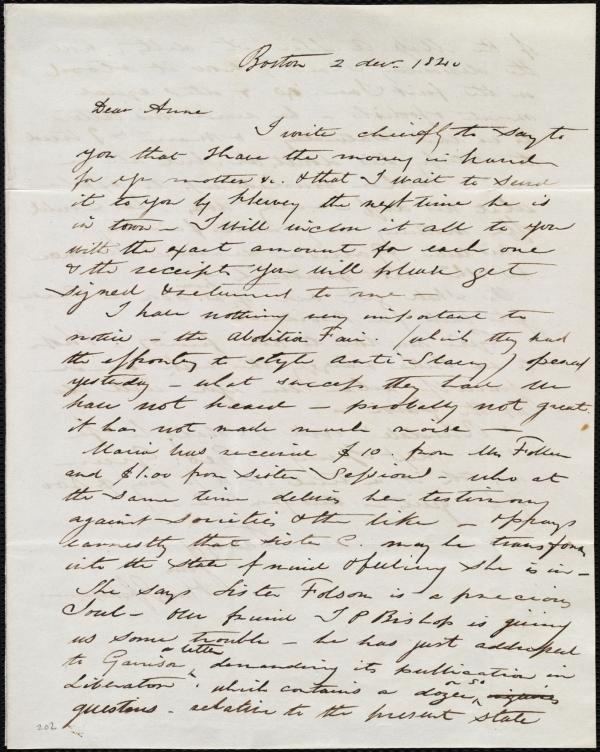 Boston 2 dec. 1840
Dear Anne
I write chiefly to say to
you that I have the money in hand
for yr mother &c. & that I wait to send
it to you by Hervey the next time he is
in town - I will inclose it all to you
with the exact amount for each one
& the receipts you will please get
signed & returned to me
I have nothing very important to
notice - the Abolition Fair (which they had
the effrontery to style Anti Slavery) opened
yesterday - what success they have we
have not heard - probably not great.
it has not made much noise -
Maria has receive $10. from Mrs Follen
and $1.00 from Sister Sessions - who at
the same time delivers her testimony
against societies & the like - & prays
earnestly that sister C. may be transform
into the State of mind & feeling she is in -
She says Sister Folsom is a precious
Soul - Our friend J P Bishop is giving
us some trouble - he has just addressed
a letter
to Garrison, demanding its publication in
or so
Liberator. which contains a dozen
questions - relative to the present state
202